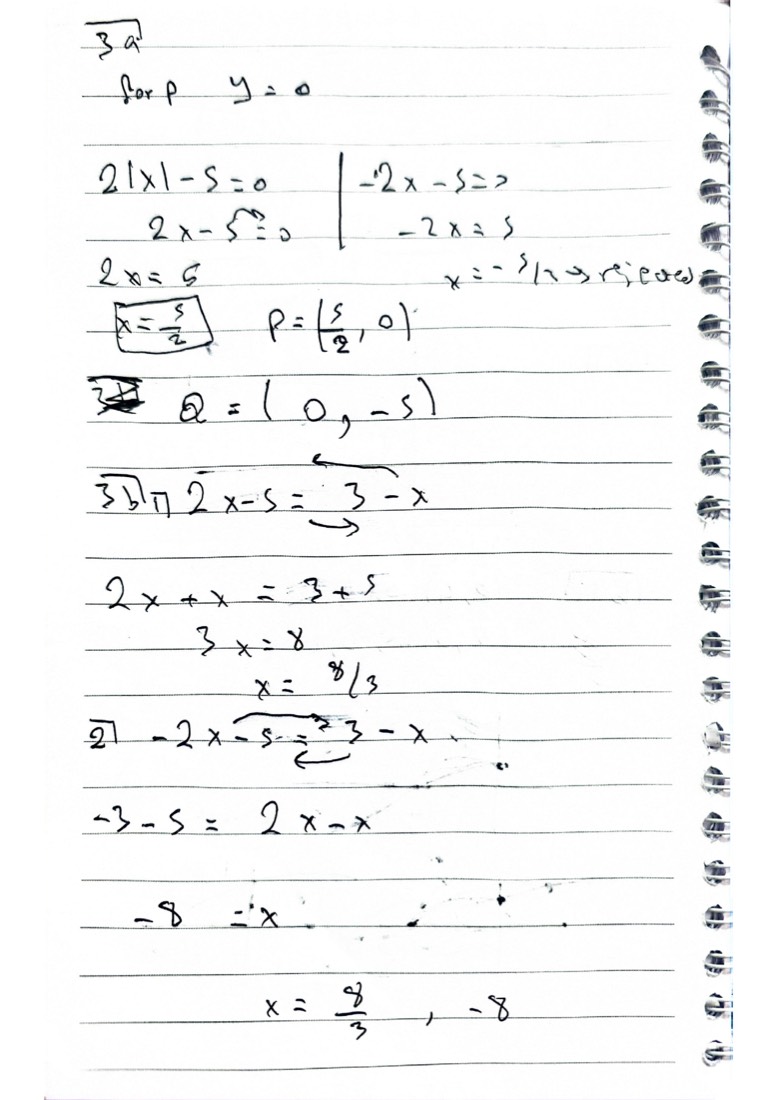 3a
for P y = 0
2|x| - 5 = 0 | -2x - 5 = 0
2x - 5 = 0 | -2x = 5
2x = 5 x = -5/2 → rejected
x = 5/2 P = (5/2, 0)
Q = (0, -5)
3b 1 2x - 5 = 3 - x
2x + x = 3 + 5
3x = 8
x = 8/3
2 -2x - 5 = 3 - x
-3 - 5 = 2x - x
-8 = x
x = 8/3 , -8